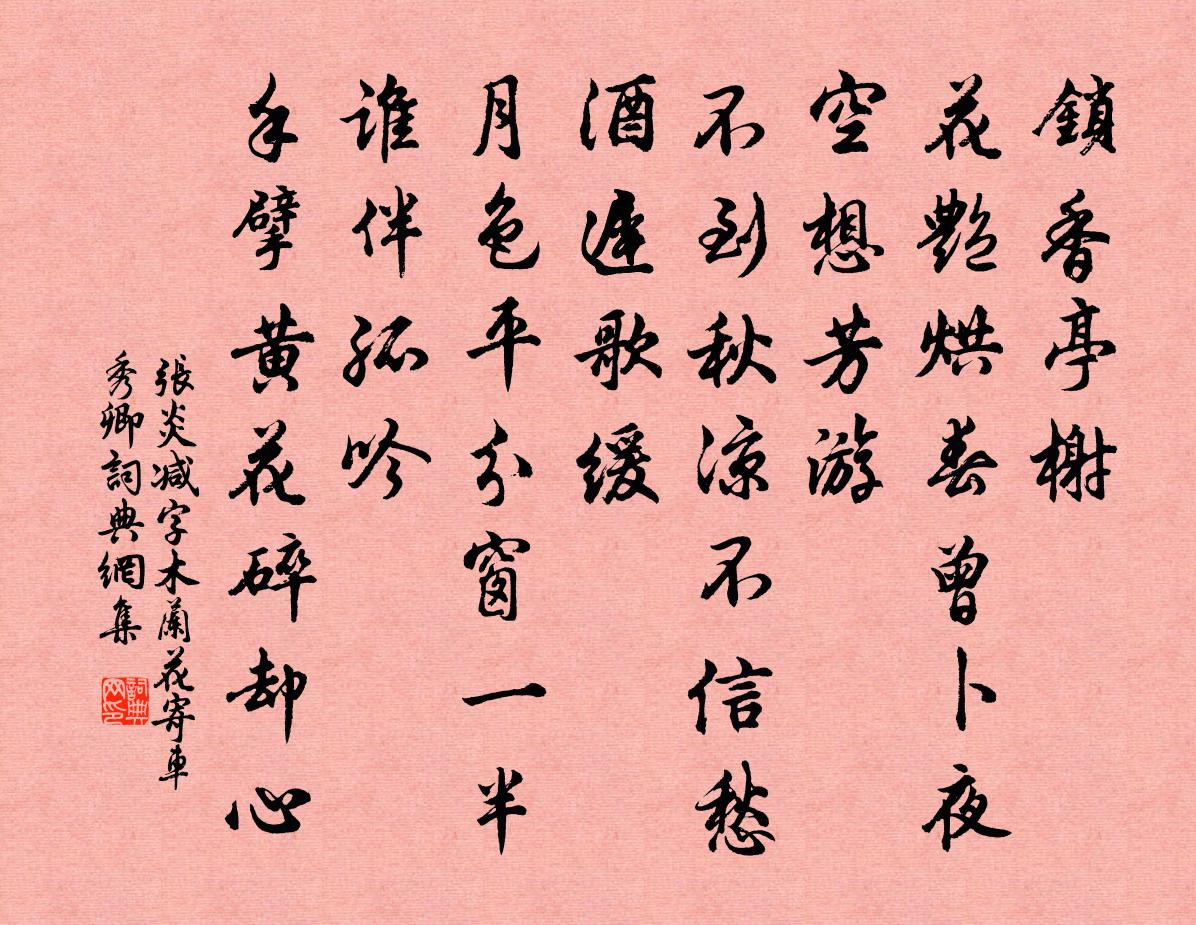 鎖香亭榭
花艷烘春曾卜夜
空想芳游
不到秋涼不信愁
酒遲歌緩
月色平分窗一半
誰伴孤吟
手擘黃花碎却心
張炎减字木蘭花寄車
秀卿詞典網集
詞典
网印